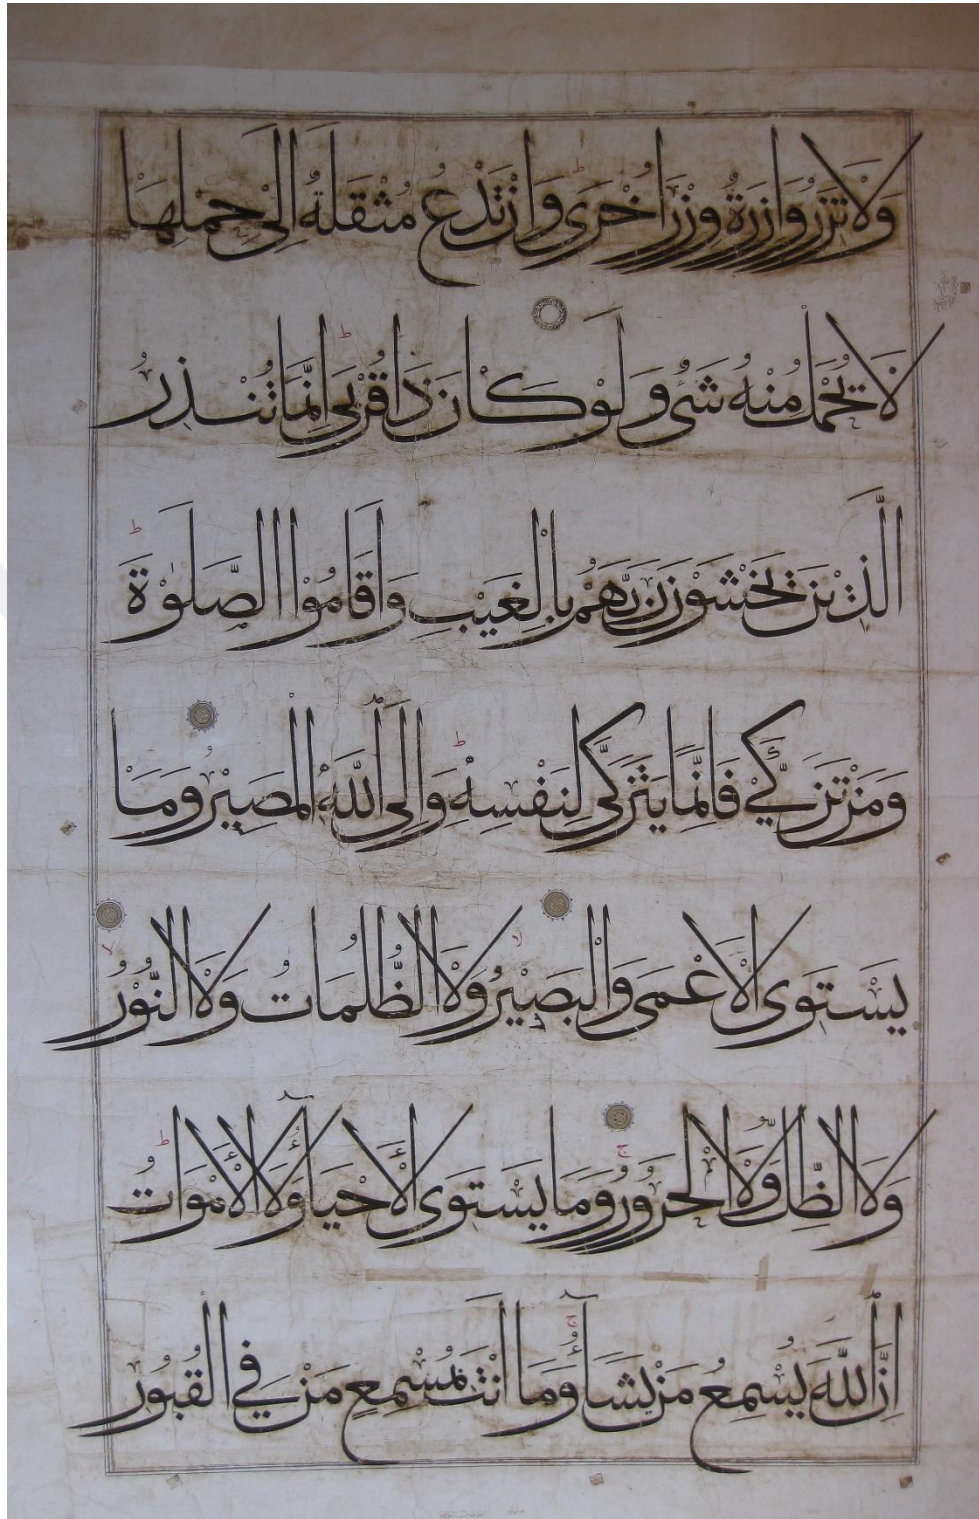 وَلَا تَزِرُ وَازِرَةٌ وِزْرَ اُخْرَى وَاِنْ تَدْعُ مُثْقَلَةٌ اِلَى حِمْلِهَا
لَا يُحْمَلْ مِنْهُ شَىْءٌ وَلَوْ كَانَ ذَا قُرْبَى اِنَّمَا تُنْذِرُ
الَّذِيْنَ يَخْشَوْنَ رَبَّهُمْ بِالْغَيْبِ وَاَقَامُوْا الصَّلٰوةَ
وَمَنْ تَزَكَّى فَاِنَّمَا يَتَزَكَّى لِنَفْسِهٖ وَاِلَى اللّٰهِ الْمَصِيْرُ وَمَا
يَسْتَوِى الْاَعْمَى وَالْبَصِيْرُ وَلَا الظُّلُمَاتُ وَلَا النُّوْرُ
وَلَا الظِّلُّ وَلَا الْحَرُوْرُ وَمَا يَسْتَوِى الْاَحْيَآءُ وَلَا الْاَمْوَاتُ
اِنَّ اللّٰهَ يُسْمِعُ مَنْ يَشَآءُ وَمَا اَنْتَ بِمُسْمِعٍ مَنْ فِى الْقُبُوْرِ